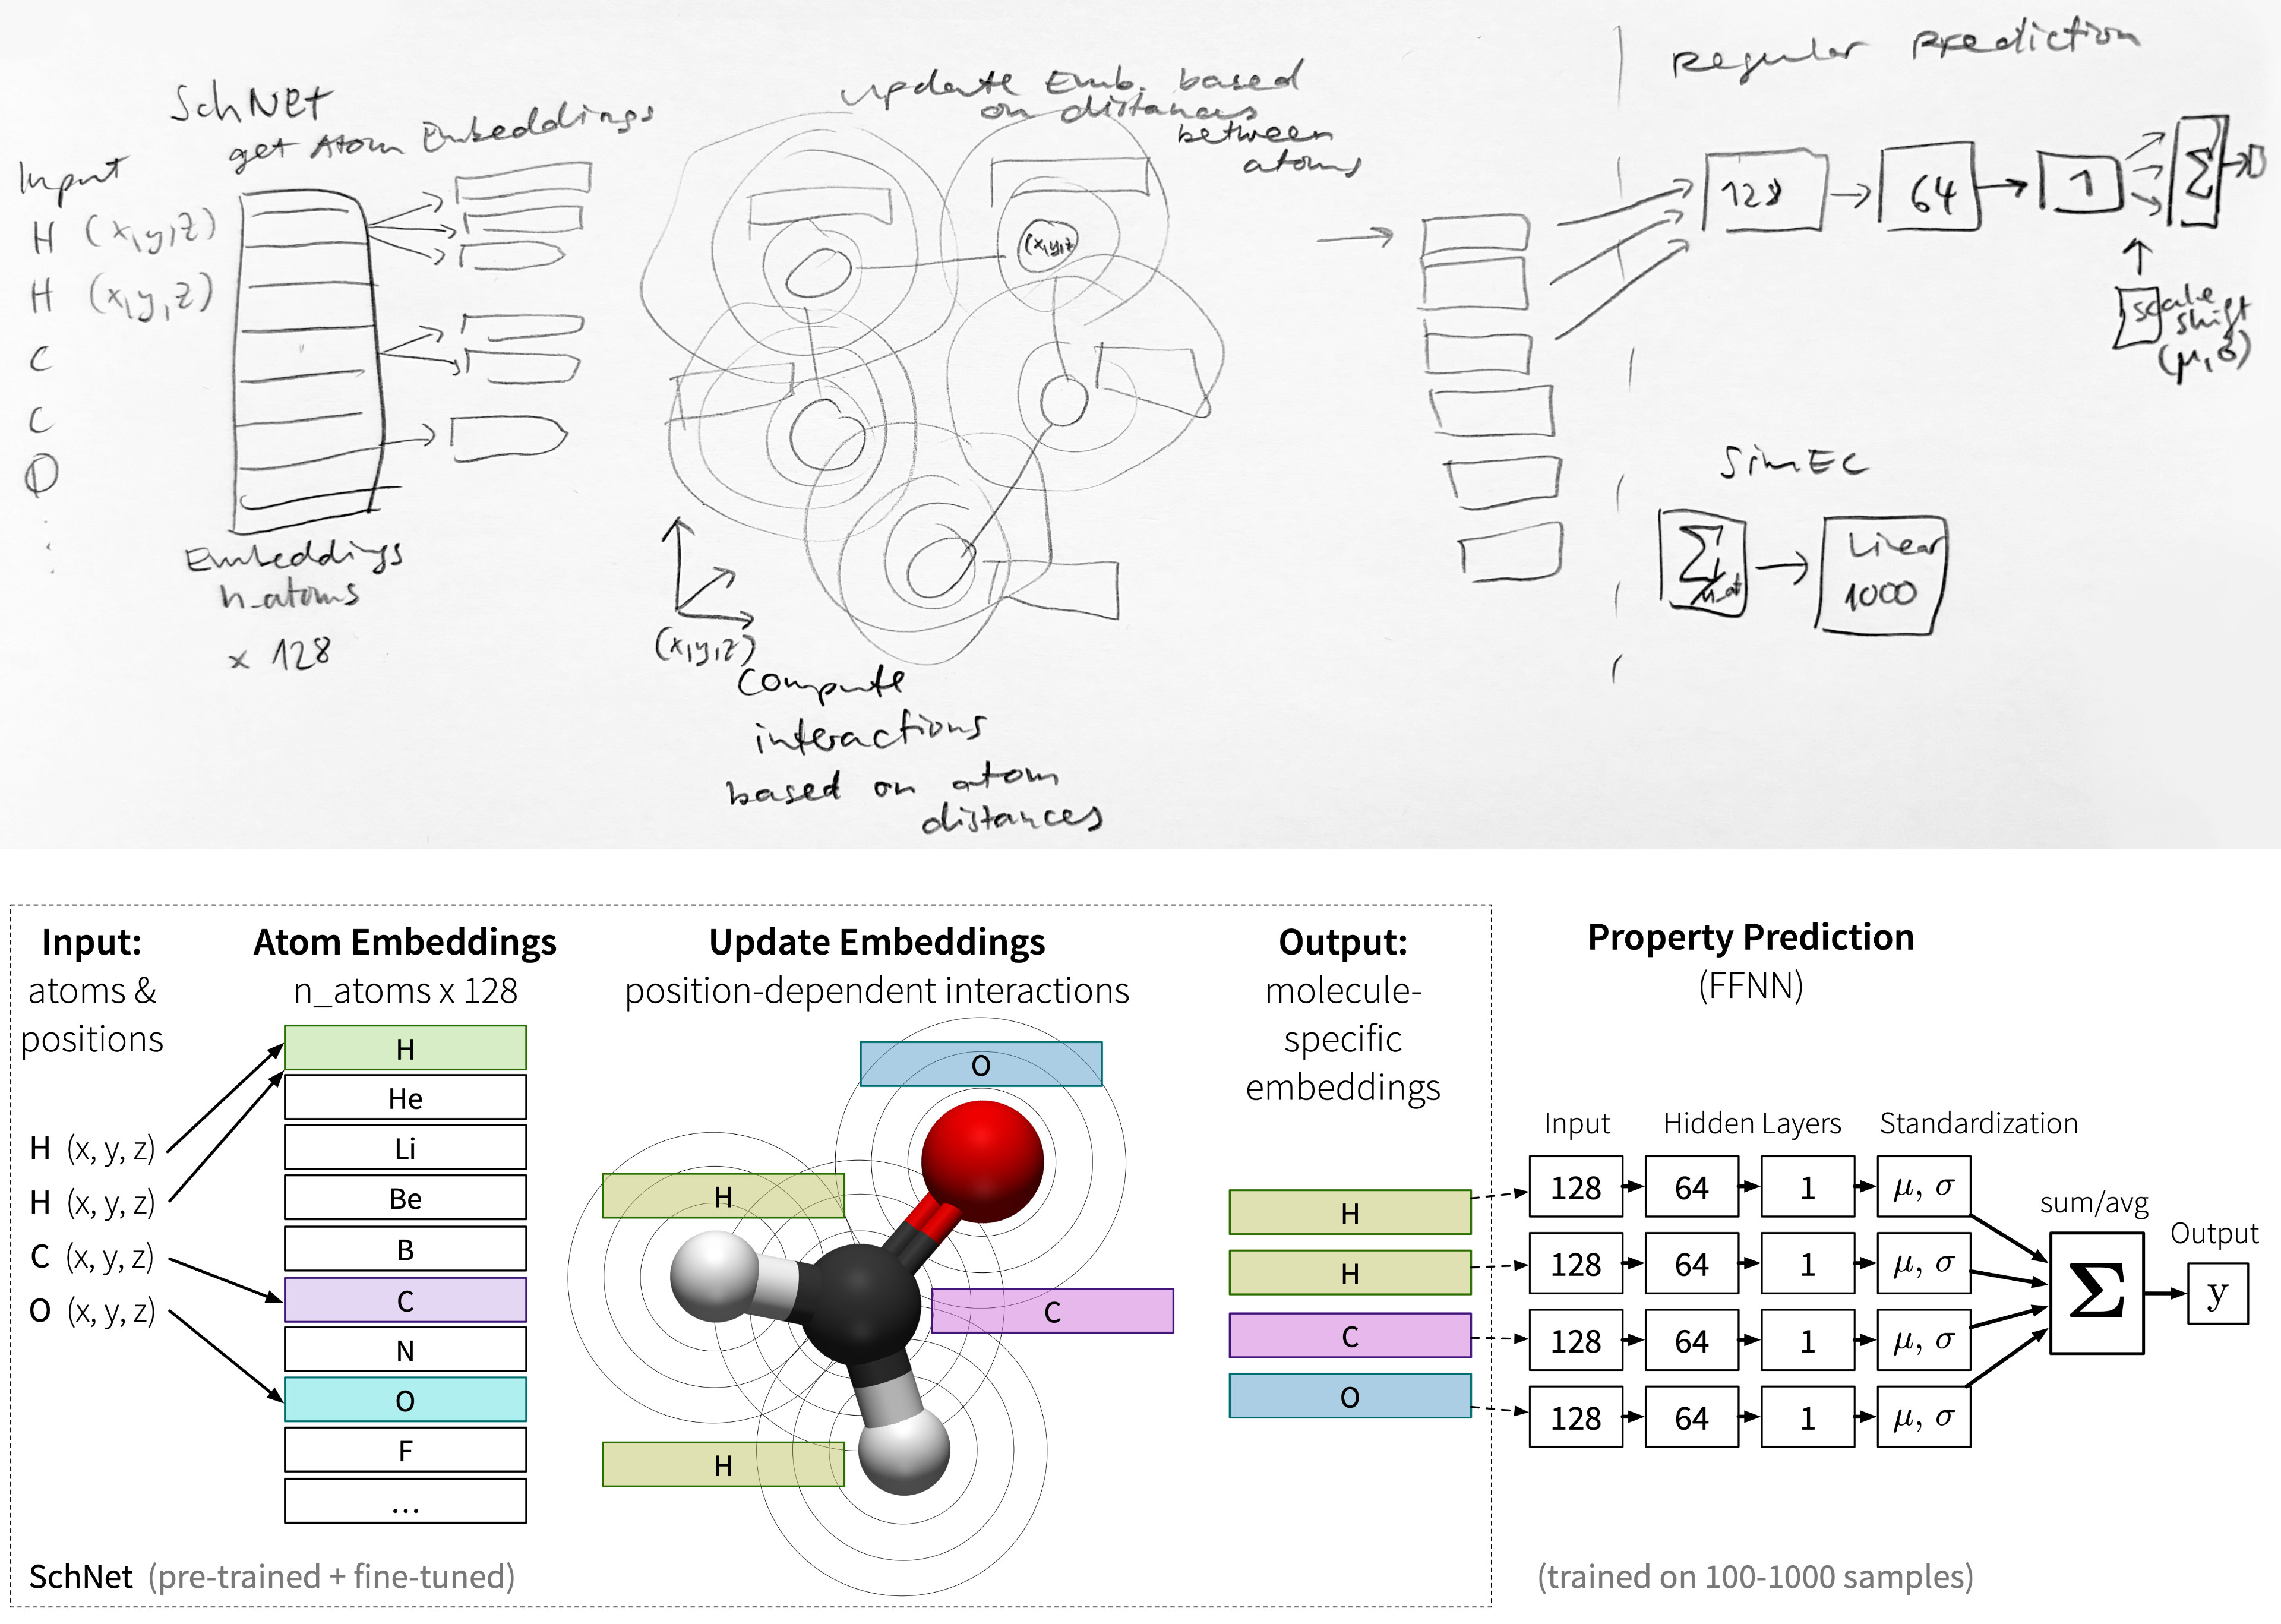 SchNet
get Atom Embeddings
Input
H (x,y,z)
H (x,y,z)
C
C
O
Embeddings
n_atoms
x 128
update Emb. based
on distances
between
atoms
(x,y,z)
(x,y,z)
Compute
interactions
based on atom
distances
Regular Prediction
128
64
1
Σ
scale
shift
(μ, σ)
SimEC
Σ
Linear
1000
Input:
atoms &
positions
H (x, y, z)
H (x, y, z)
C (x, y, z)
O (x, y, z)
Atom Embeddings
n_atoms x 128
H
He
Li
Be
B
C
N
O
F
...
Update Embeddings
position-dependent interactions
O
H
C
H
Output:
molecule-
specific
embeddings
H
H
C
O
SchNet (pre-trained + fine-tuned)
Property Prediction
(FFNN)
Input Hidden Layers Standardization
128 64 1 μ, σ
128 64 1 μ, σ
128 64 1 μ, σ
128 64 1 μ, σ
sum/avg
Σ
Output
y
(trained on 100-1000 samples)